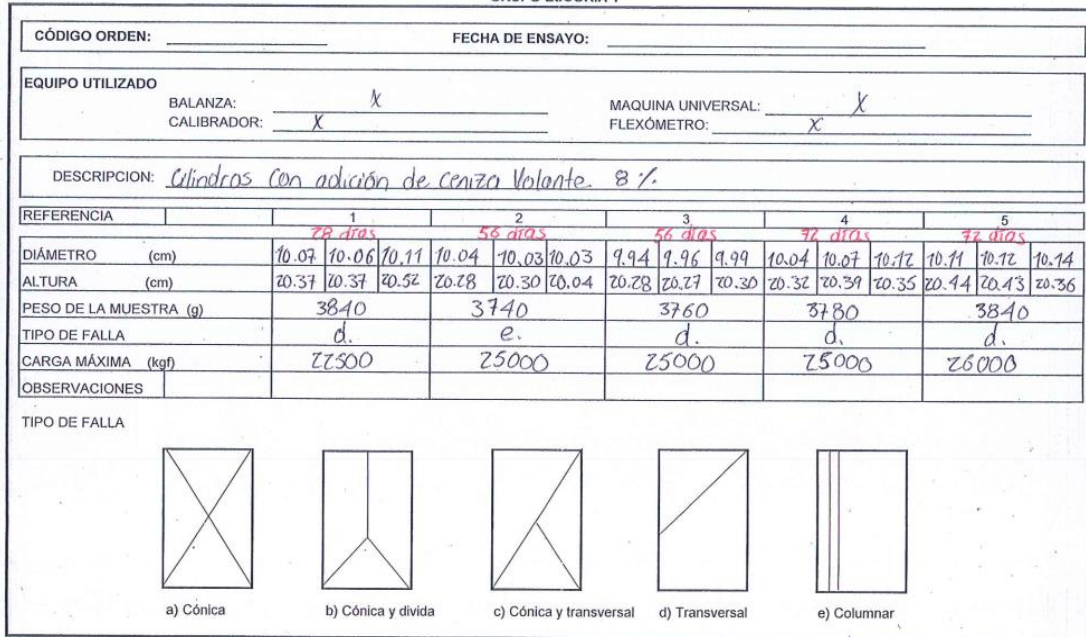 CÓDIGO ORDEN: FECHA DE ENSAYO:
EQUIPO UTILIZADO
BALANZA: X MAQUINA UNIVERSAL: X
CALIBRADOR: X FLEXÓMETRO: X
DESCRIPCION: Cilindros con adición de ceniza Volante. 8 %.
REFERENCIA 1 2 3 4 5
28 días 56 días 56 días 72 días 72 días
DIÁMETRO (cm) 10.07 10.06 10.11 10.04 10.03 10.03 9.94 9.96 9.99 10.04 10.07 10.12 10.11 10.12 10.14
ALTURA (cm) 20.37 20.37 20.52 20.28 20.30 20.04 20.28 20.27 20.30 20.32 20.39 20.35 20.44 20.43 20.36
PESO DE LA MUESTRA (g) 3840 3740 3760 3780 3840
TIPO DE FALLA d. e. d. d. d.
CARGA MÁXIMA (kgf) 22500 25000 25000 25000 26000
OBSERVACIONES
TIPO DE FALLA
a) Cónica b) Cónica y divida c) Cónica y transversal d) Transversal e) Columnar